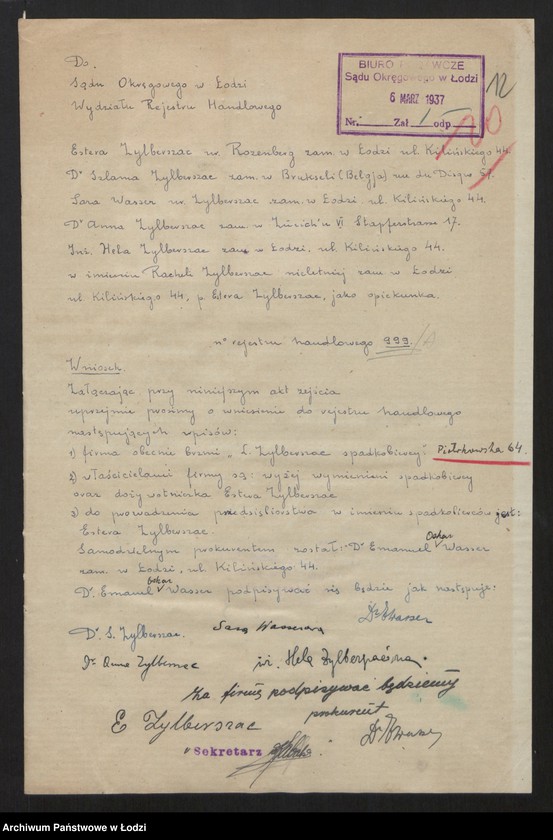 Do
Sądu Okręgowego w Łodzi
Wydziału Rejestru Handlowego
BIURO PODAWCZE
Sądu Okręgowego w Łodzi
6 MARZ 1937
Nr. Zał. 1 odp
12
Estera Zylberszac ur. Rozenberg zam. w Łodzi ul. Kilińskiego 44.
Dr Szlama Zylberszac zam. w Brukseli (Belgja) rue du
Sara Wasser ur. Zylberszac zam. w Łodzi ul. Kilińskiego 44.
Dr Anna Zylberszac zam. w Zürich'u VI Stapferstrasse 17.
Inż. Hela Zylberszac zam. w Łodzi, ul. Kilińskiego 44.
w imieniu Racheli Zylberszac nieletniej zam. w Łodzi
ul. Kilińskiego 44, p. Estera Zylberszac, jako opiekunka.
nº rejestru handlowego 999/A
Wniosek.
Załączając przy niniejszym akt zejścia
uprzejmie prosimy o wniesienie do rejestru handlowego
następujących wpisów:
1) firma obecnie brzmi "S. Zylberszac spadkobiercy" Piotrkowska 64.
2) właścicielami firmy są: wyżej wymienieni spadkobiercy
oraz dożywotniczka Estera Zylberszac
3) do prowadzenia przedsiębiorstwa w imieniu spadkobierców jest:
Estera Zylberszac.
Samodzielnym prokurentem został: Dr Emanuel Oskar Wasser
zam. w Łodzi, ul. Kilińskiego 44.
Dr. Emanuel Oskar Wasser podpisywać się będzie jak następuje:
Dr Wasser
Dr. S. Zylberszac. Sara Wasserowa
Dr Anna Zylberszac inż. Hela Zylberszacówna.
Za firmę podpisywać będziemy
prokurent
E Zylberszac Dr Wasser
"Sekretarz
Archiwum Państwowe w Łodzi